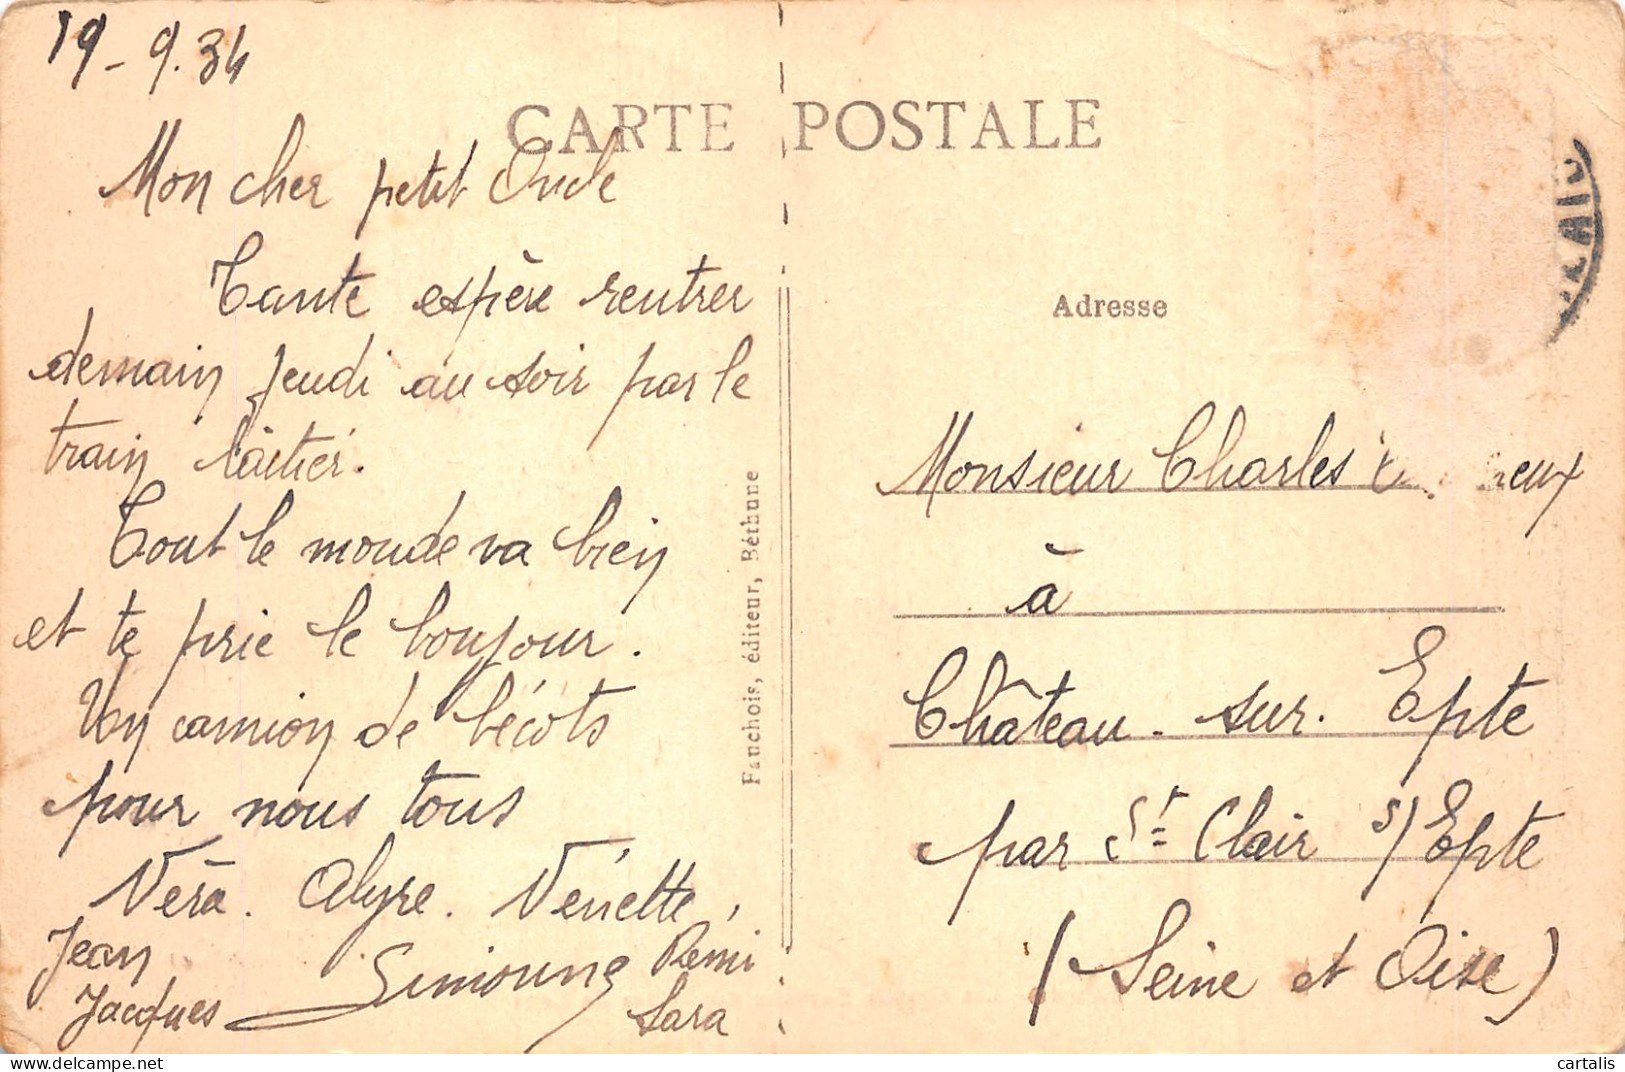 19-9.34
CARTE POSTALE
Mon cher petit Oncle
Tante espère rentrer
demain jeudi au soir par le
train laitier.
Tout le monde va bien
et te prie le bonjour.
Un camion de bécots
pour nous tous
Véra. Alyre. Vénette,
Jean
Simoune Rémi
Jacques
Sara
Fauchois, éditeur, Béthune
Adresse
Monsieur Charles
à
Château-sur-Epte
par St Clair s/Epte
(Seine et Oise)
cartalis